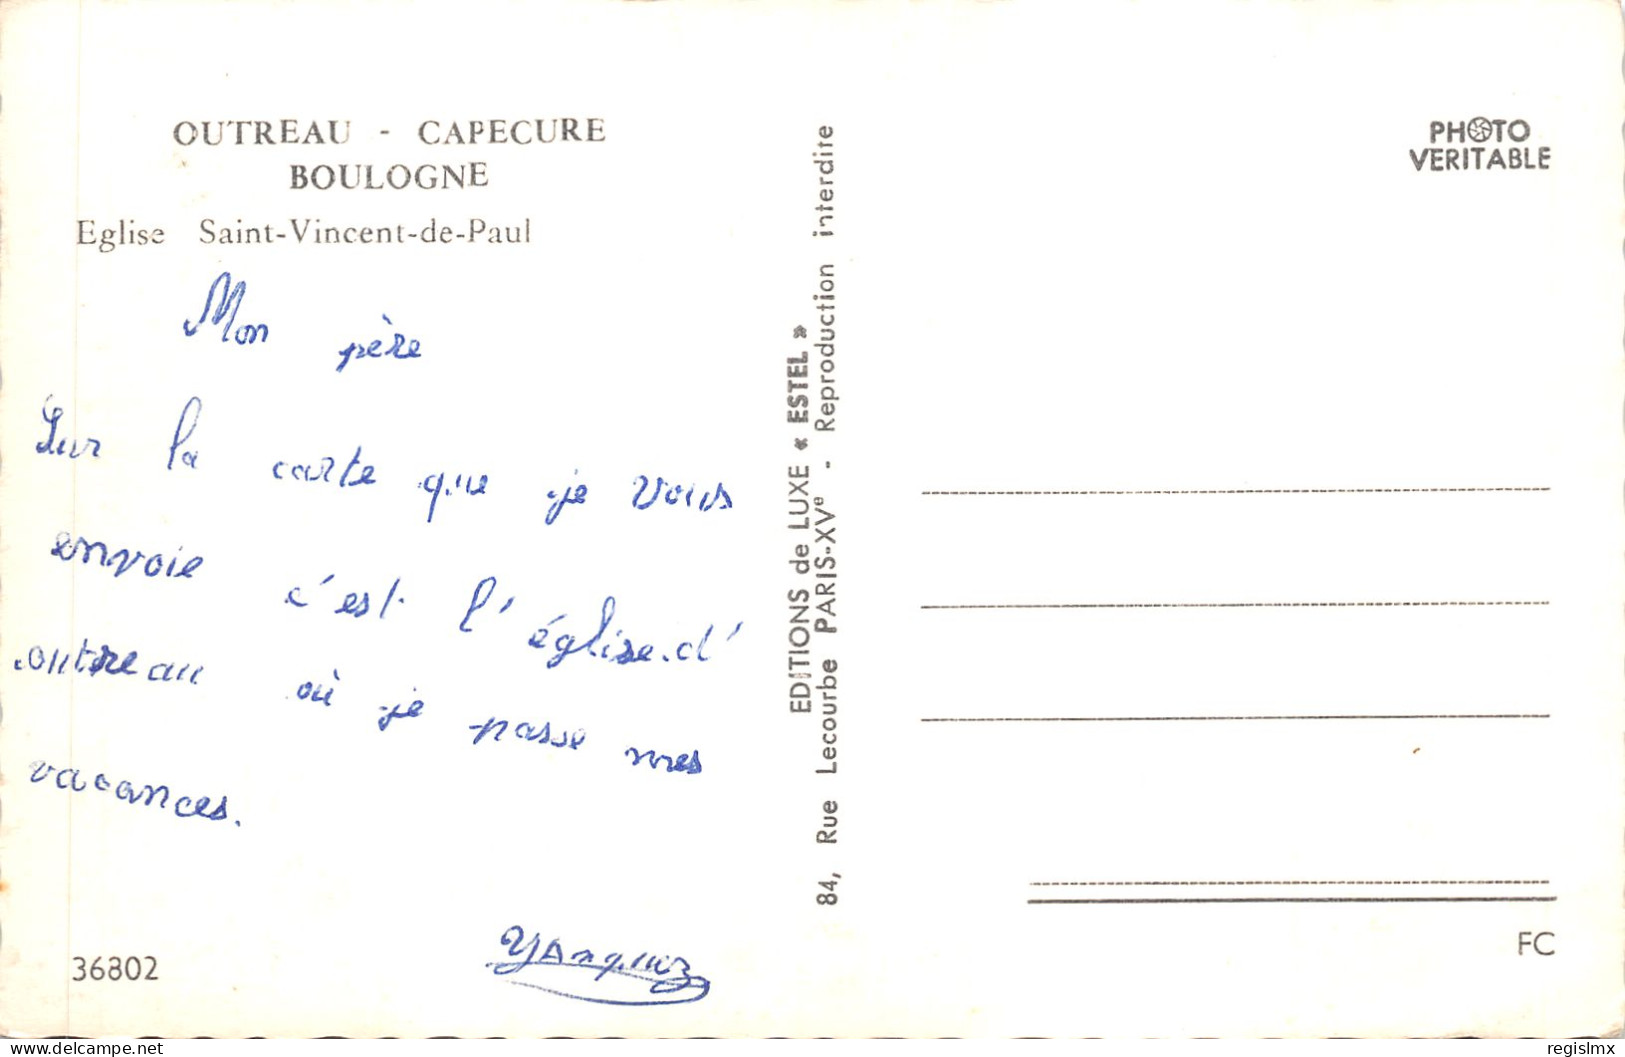 OUTREAU - CAPECURE
BOULOGNE
Eglise Saint-Vincent-de-Paul
Mon père
Sur la carte que je vous
envoie c'est l'église d'
outreau où je passe mes
vacances.
36802
EDITIONS de LUXE « ESTEL »
84, Rue Lecourbe PARIS-XVe - Reproduction interdite
PHOTO
VERITABLE
FC
delcampe.net
regislmx